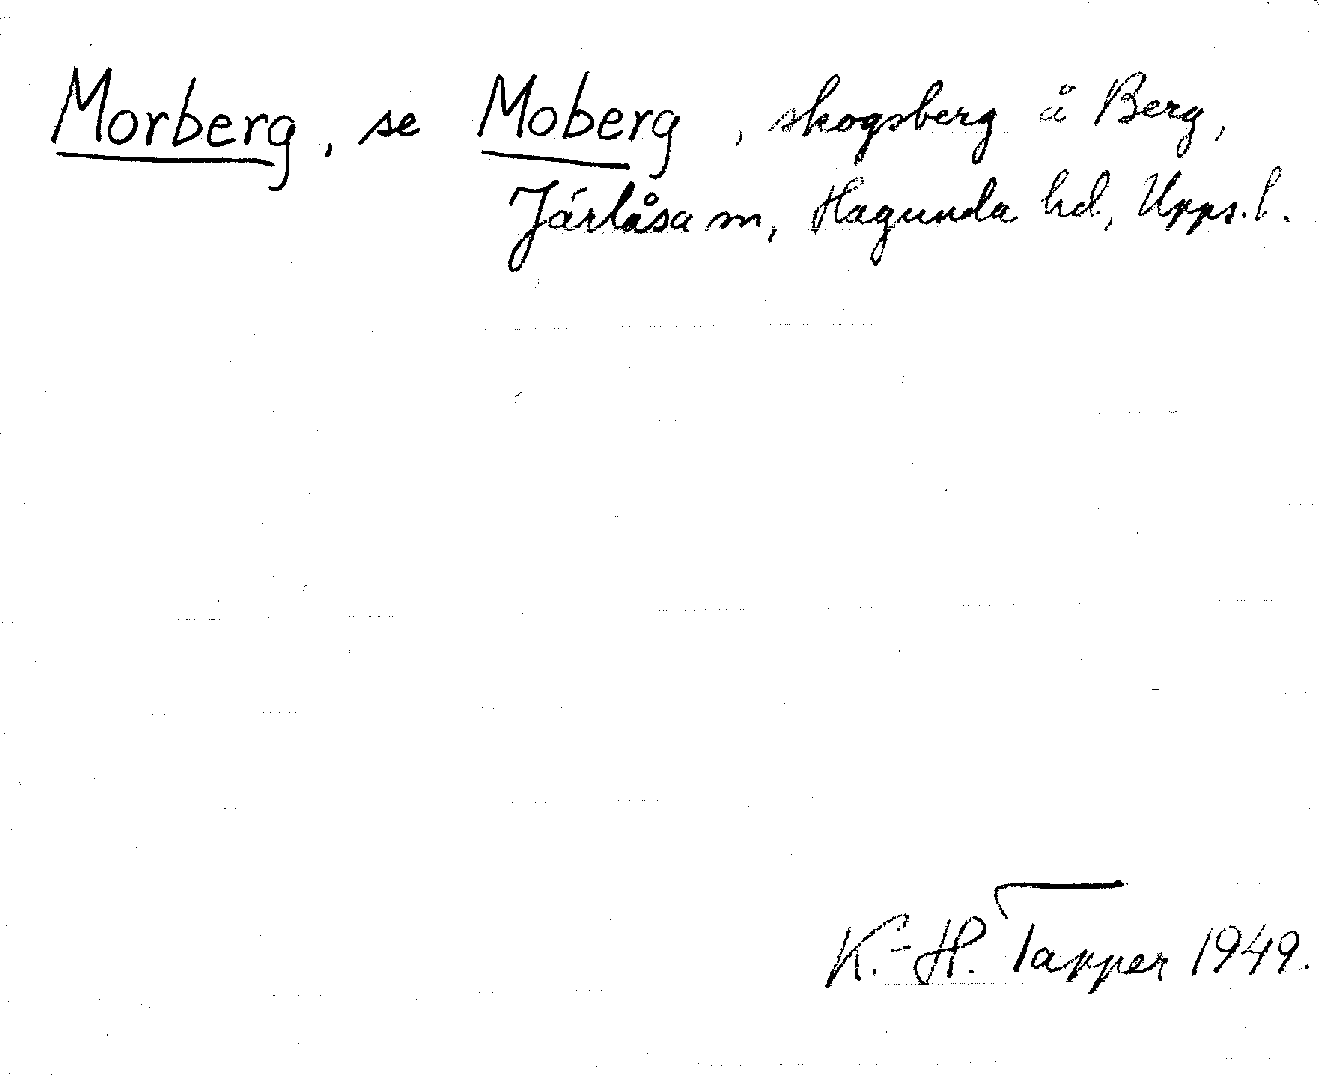 Morberg, se Moberg, skogsberg å Berg,
Järlåsa sn, Hagunda hd, Upps. l.
K.-H. Tapper 1949.